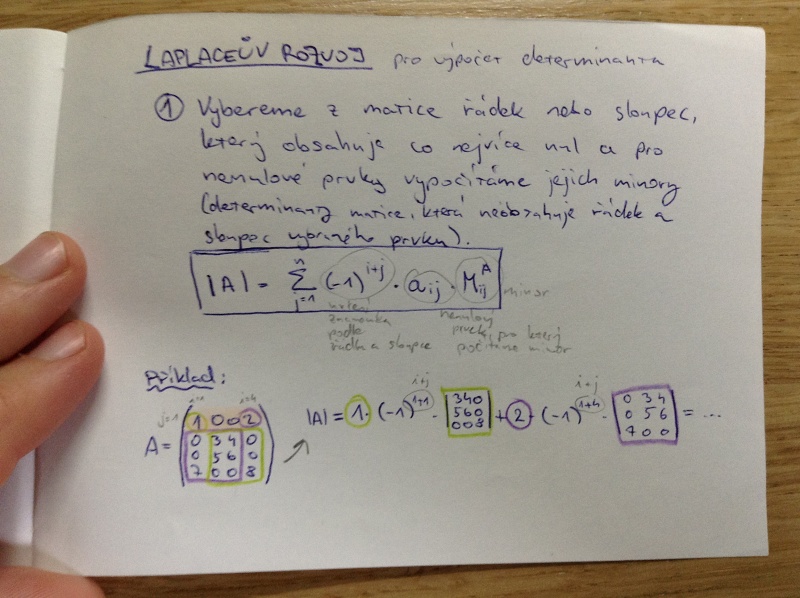 LAPLACEŮV ROZVOJ pro výpočet determinanta
① Vybereme z matice řádek nebo sloupec,
který obsahuje co nejvíce nul a pro
nenulové prvky vypočítáme jejich minory
(determinanty matice, která neobsahuje řádek a
sloupec vybraného prvku).
|A| = \sum_{j=1}^{n} (-1)^{i+j} · a_{ij} · M_{ij}^{A} minor
určení
znaménka
podle
řádku a sloupce
nenulový
prvek, pro který
počítáme minor
Příklad:
j=1 i=1 i=4
A = (1 0 0 2
0 3 4 0
0 5 6 0
7 0 0 8)
|A| = 1 · (-1)^{1+1} · |3 4 0
5 6 0
0 0 8| + 2 · (-1)^{1+4} · |0 3 4
0 5 6
7 0 0| = ...
i+j i+j